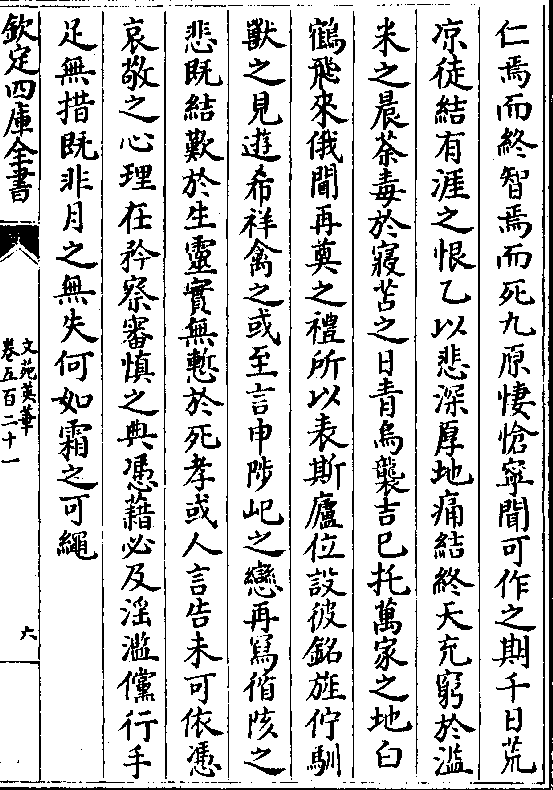 仁焉而終智焉而死九原悽愴寧聞可作之期千日荒
凉徒結有涯之恨乙以悲深厚地痛結終天充窮於溢
米之晨荼毒於寢苫之日青烏襲吉已托萬家之地白
鶴飛來俄聞再奠之禮所以表斯廬位設彼銘旌佇馴
獸之見遊希祥禽之或至言申陟屺之戀再寫循陔之
悲既結歎於生靈實無慙於死孝或人言告未可依憑
哀敬之心理在矜察審慎之典憑藉必及淫濫儻行手
足無措既非月之無失何如霜之可繩
欽定四庫全書
文苑英華
卷五百二十一
六